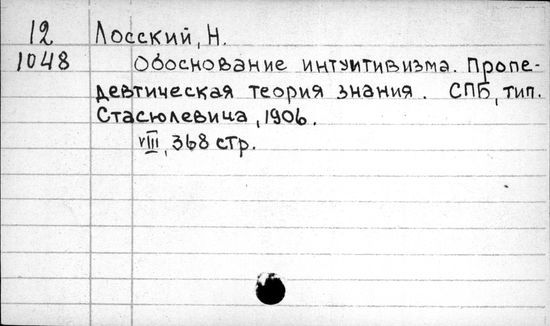 12 Лосский, Н.
1048 Обоснование интуитивизма. Пропе-
девтическая теория знания. СПБ, тип.
Стасюлевича, 1906.
VIII, 368 стр.